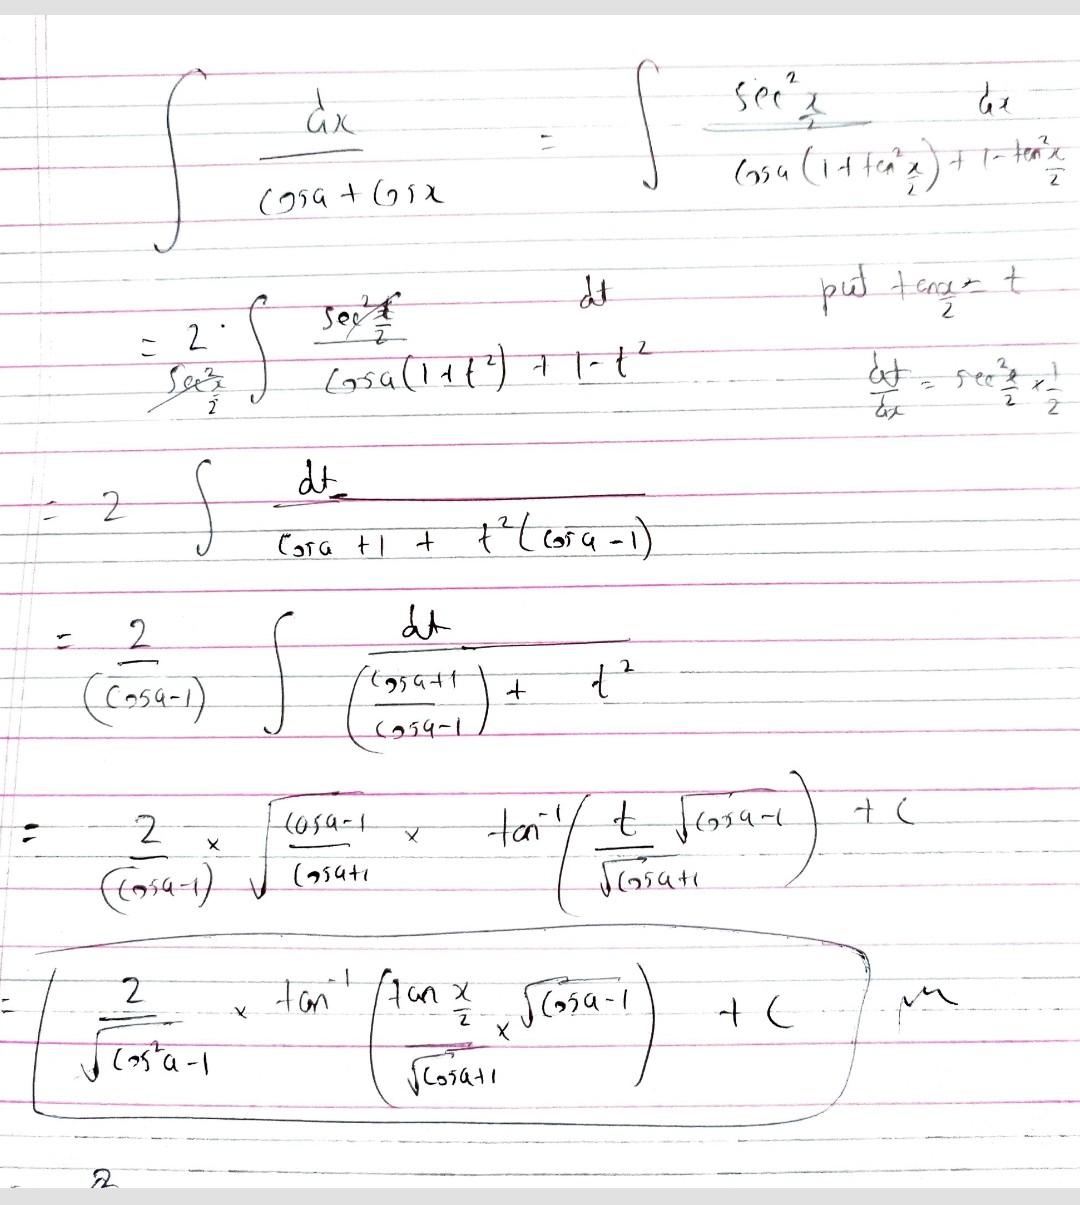 ∫ dx / (cosa + cosx) = ∫ sec² x/2 dx / (cosa (1 + tan² x/2) + 1 - tan² x/2)
= 2 / sec² x/2 · ∫ sec² x/2 dt / (cosa(1+t²) + 1-t²)   put tan x/2 = t
dt/dx = sec² x/2 × 1/2
= 2 ∫ dt / (cosa + 1 + t²(cosa - 1))
= 2 / (cosa-1) ∫ dt / ((cosa+1 / cosa-1) + t²)
= 2 / (cosa-1) × √(cosa-1 / cosa+1) × tan⁻¹ (t √cosa-1 / √cosa+1) + C
= 2 / √cos²a-1 × tan⁻¹ (tan x/2 × √cosa-1 / √cosa+1) + C
2